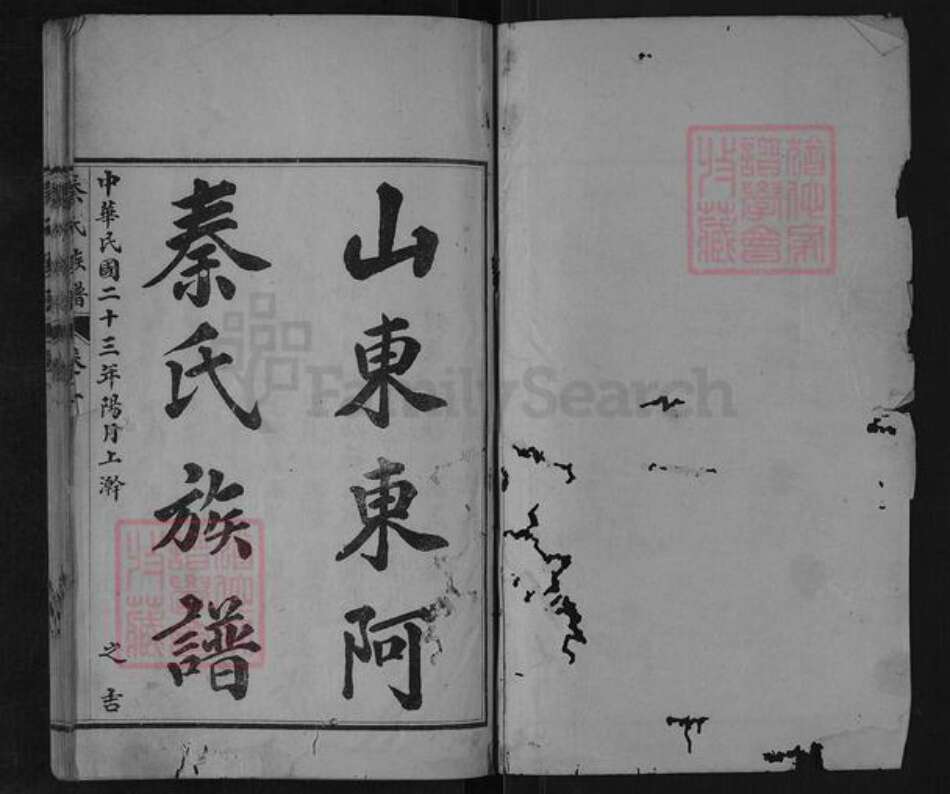 山東東阿
秦氏族譜
中華民國二十三年陽月上澣
之吉
秦氏族譜
FamilySearch
譜學會
收藏
譜學會
收藏